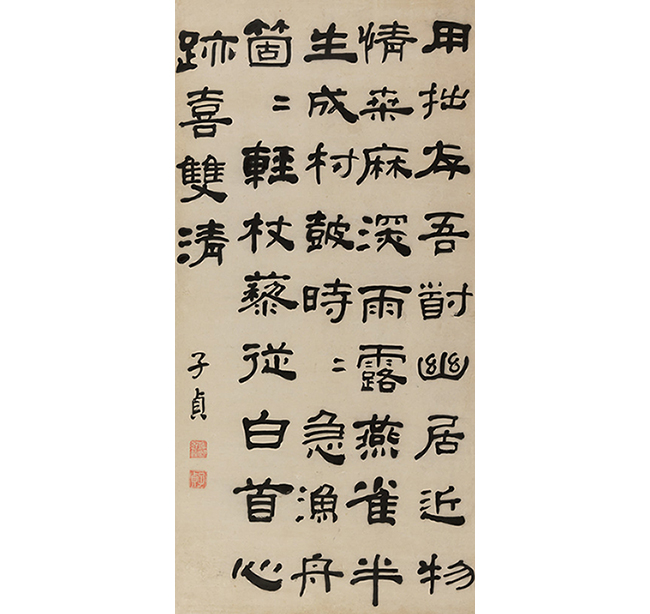 用拙存吾道幽居近物
情桒麻深雨露燕雀半
生成村鼓時〻急漁舟
箇〻輕杖藜從白首心
跡喜雙清
子貞